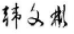 韩文彬